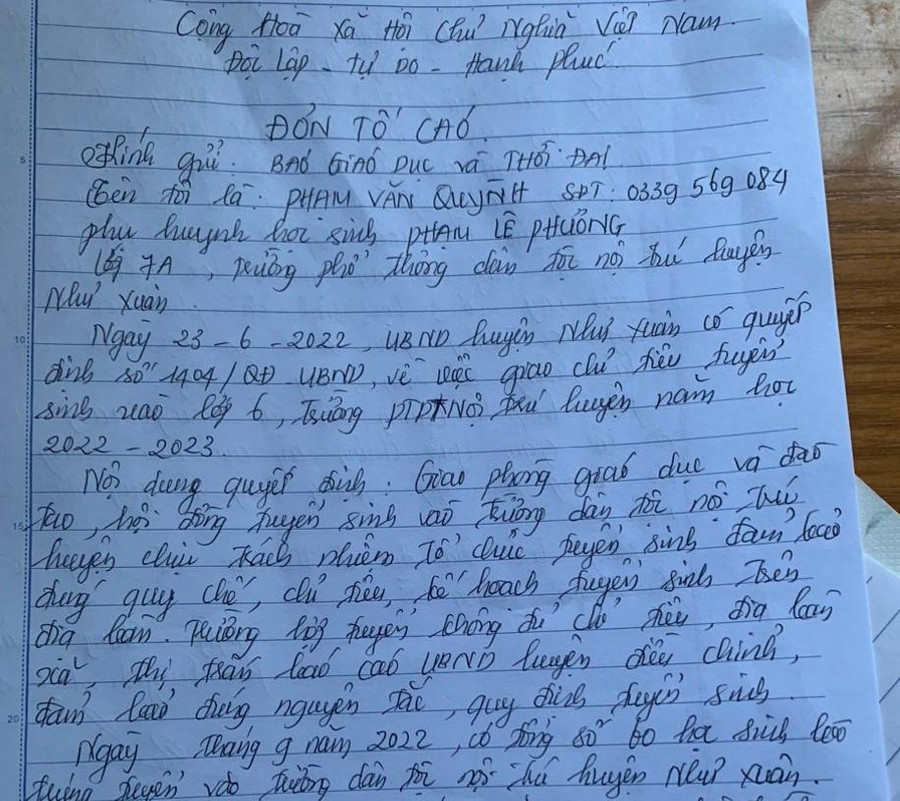 Cộng Hoà Xã Hội Chủ Nghĩa Việt Nam.
Độc Lập - Tự Do - Hạnh Phúc.
ĐƠN TỐ CÁO
Kính gửi: BÁO GIÁO DỤC và THỜI ĐẠI
Tên tôi là: PHẠM VĂN QUỲNH SĐT: 0339 569 084
phụ huynh học sinh PHẠM LÊ PHƯƠNG
Lớp 7A, trường phổ thông dân tộc nội trú huyện
Như Xuân.
Ngày 23-6-2022, UBND huyện Như Xuân có quyết
định số 1404/QĐ UBND, về việc giao chỉ tiêu tuyển
sinh vào lớp 6, Trường PTDTNội trú huyện năm học
2022-2023.
Nội dung quyết định: Giao phòng giáo dục và đào
tạo, hội đồng tuyển sinh vào trường dân tộc nội trú
huyện chịu trách nhiệm tổ chức tuyển sinh đảm bảo
đúng quy chế, chỉ tiêu, kế hoạch tuyển sinh trên
địa bàn. Trường hợp tuyển không đủ chỉ tiêu, địa bàn
xã, thị trấn báo cáo UBND huyện điều chỉnh,
đảm bảo đúng nguyên tắc, quy định tuyển sinh.
Ngày tháng 9 năm 2022, có tổng số 60 học sinh
trúng tuyển vào trường dân tộc nội trú huyện Như Xuân.